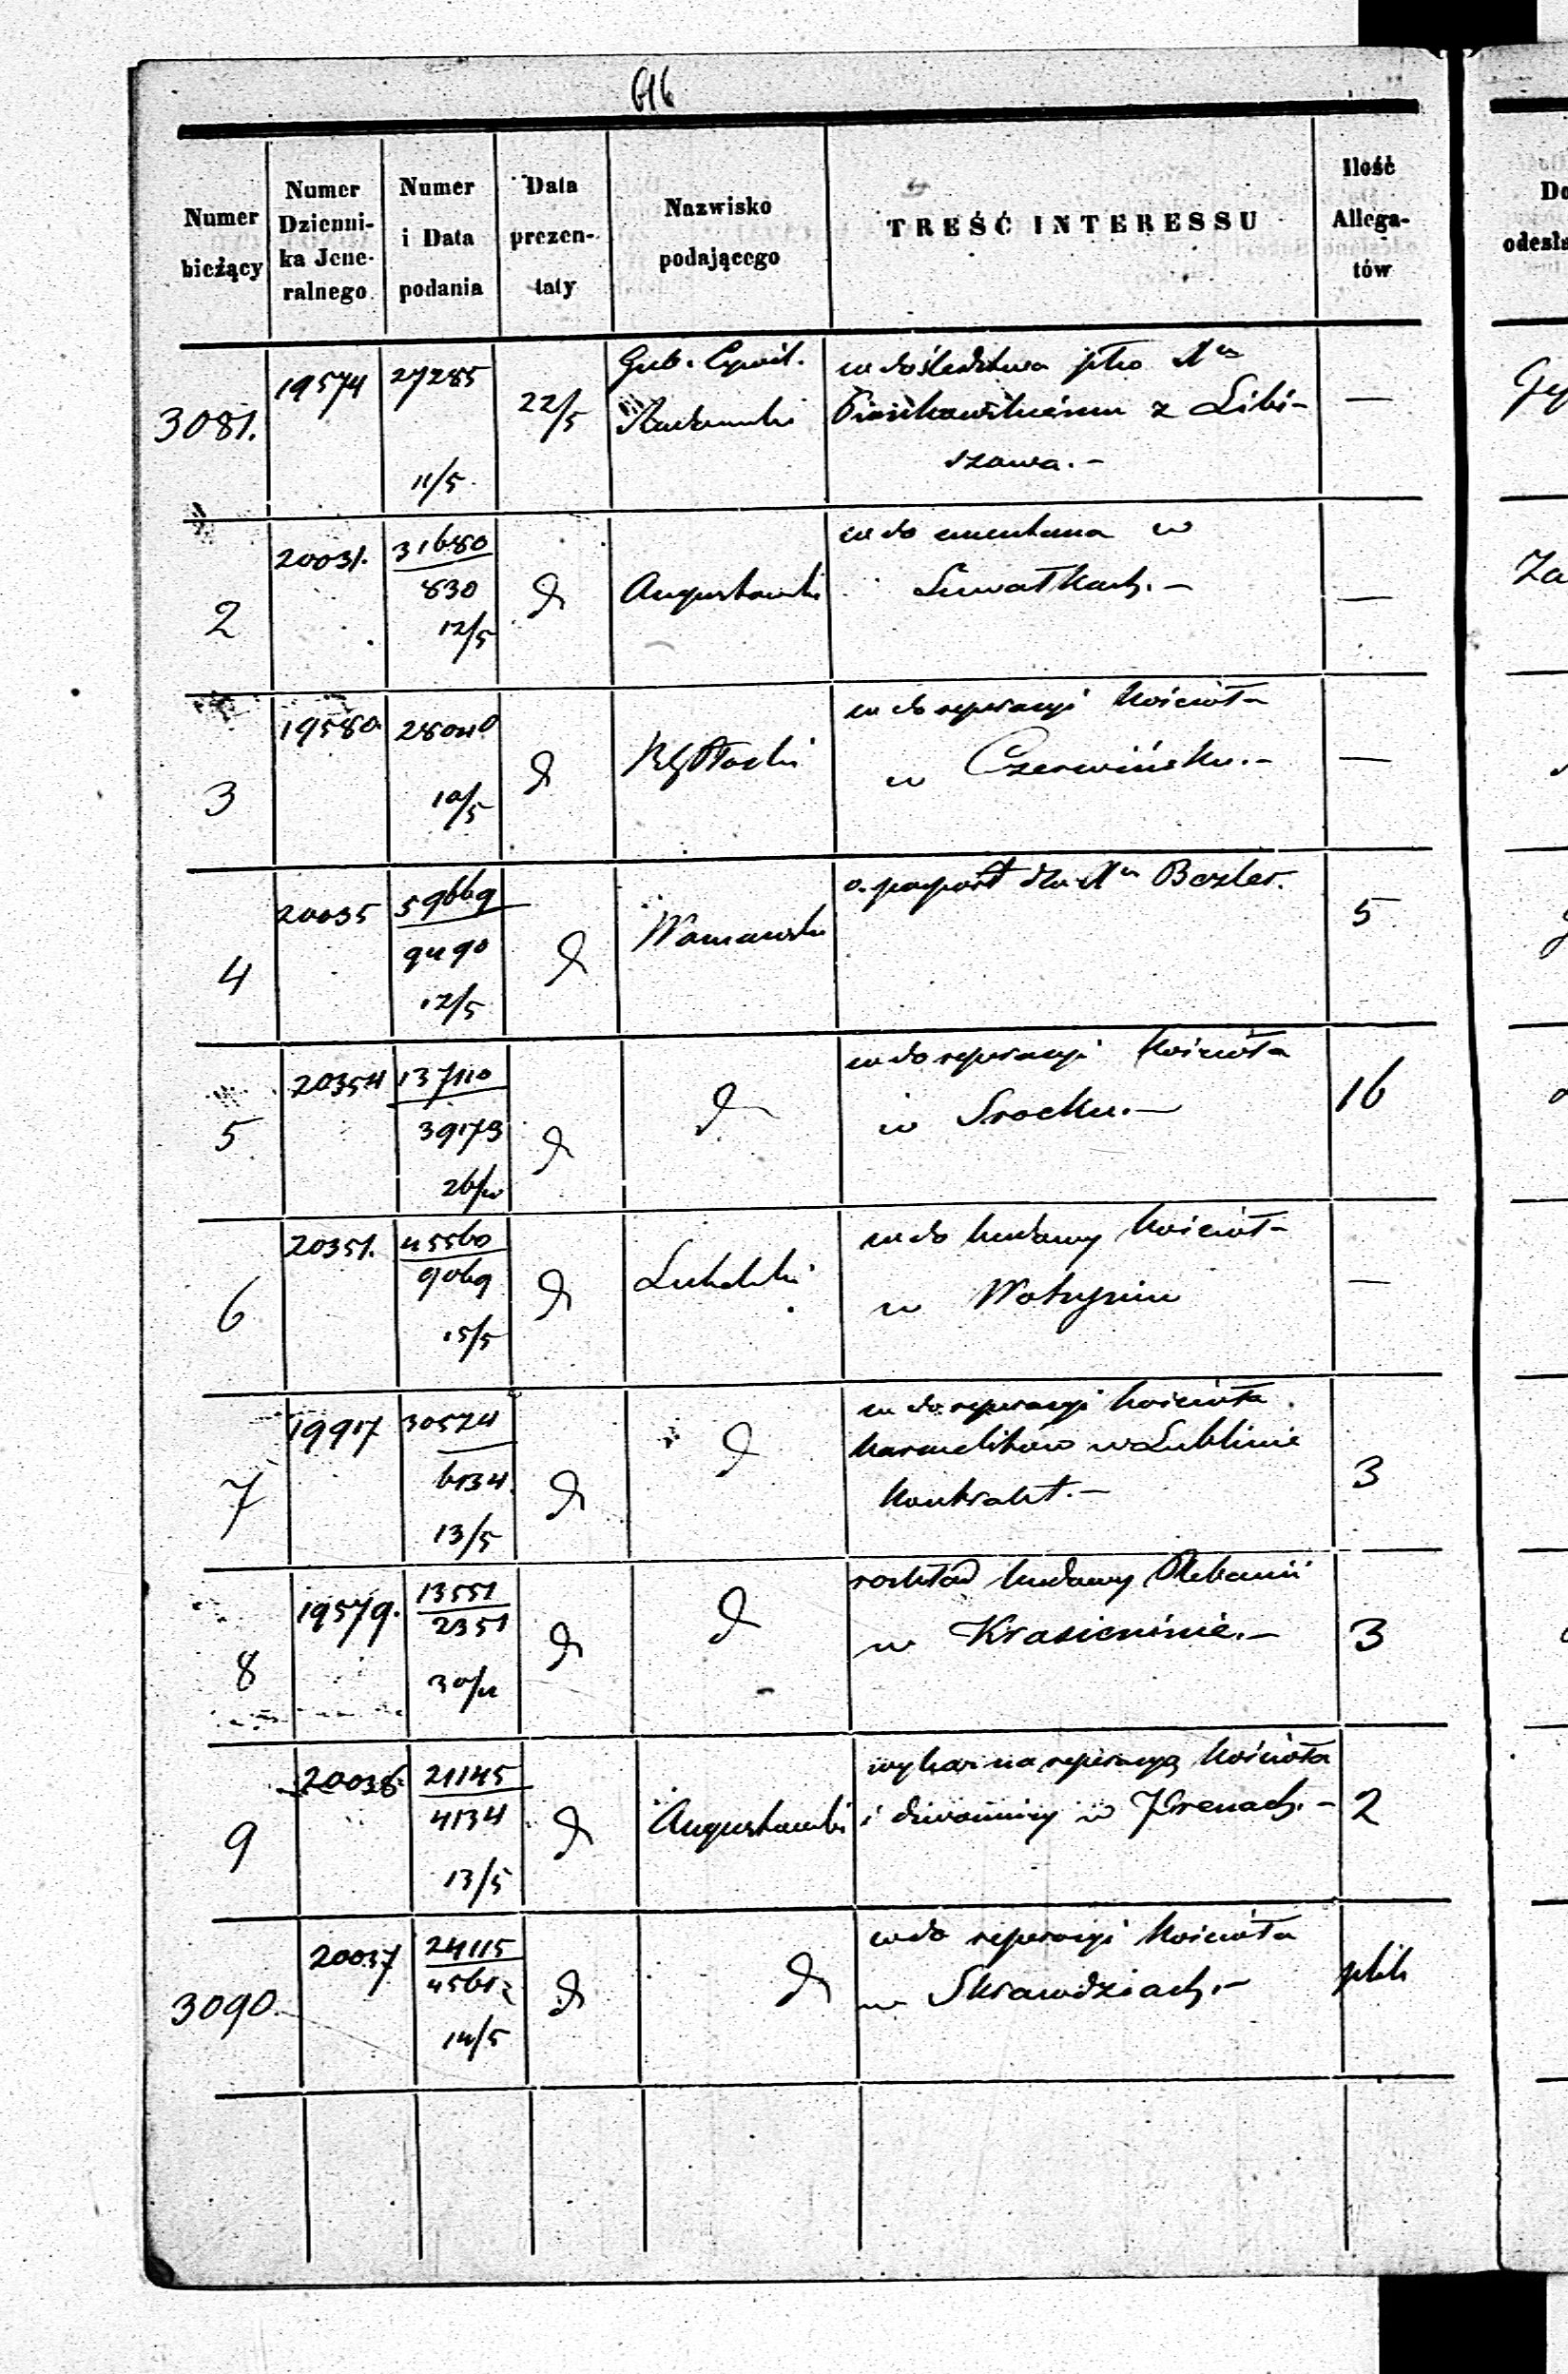 616
Numer bieżący
Numer Dzienni-ka Jene-ralnego
Numer i Data podania
Data prezen-taty
Nazwisko podającego
TREŚĆ INTERESSU
Ilość Allega-tów
3081.
19574
27285
11/5
22/5
Gub. Cywil.
Radomski
w do śledztwa
z Libi-
szowa.-
—
2
20031.
31680
830
12/5
d
Augustowski
w do cmentarza w
Suwałkach.-
—
3
19580
28040
10/5
d
RG Płocki
w do reperacyi kościoła
w Czerwińsku.-
—
4
20035
59669
9490
12/5
d
Warszawski
o paszport dla Xa Bezler.
5
5
20354
137110
39173
d
d
w do reperacyi kościoła
w Srocku.-
16
6
20351.
45560
9069
15/5
d
Lubelski
w do budowy kościoła
w Wohyniu
—
7
19917
30574
6134
13/5
d
d
w do reperacyi kościoła
karmelitów w Lublinie
kontrakt.-
3
8
19579.
13551
2351
d
d
rozkład budowy Plebanii
w Krasieninie.-
3
9
20036
21145
4134
13/5
d
Augustowski
wykaz na reperacyą kościoła
i dzwonnicy w Prenach.-
2
3090.
20037
24115
14/5
d
d
w do reperacyi kościoła
w Skrawdziach.-
plik